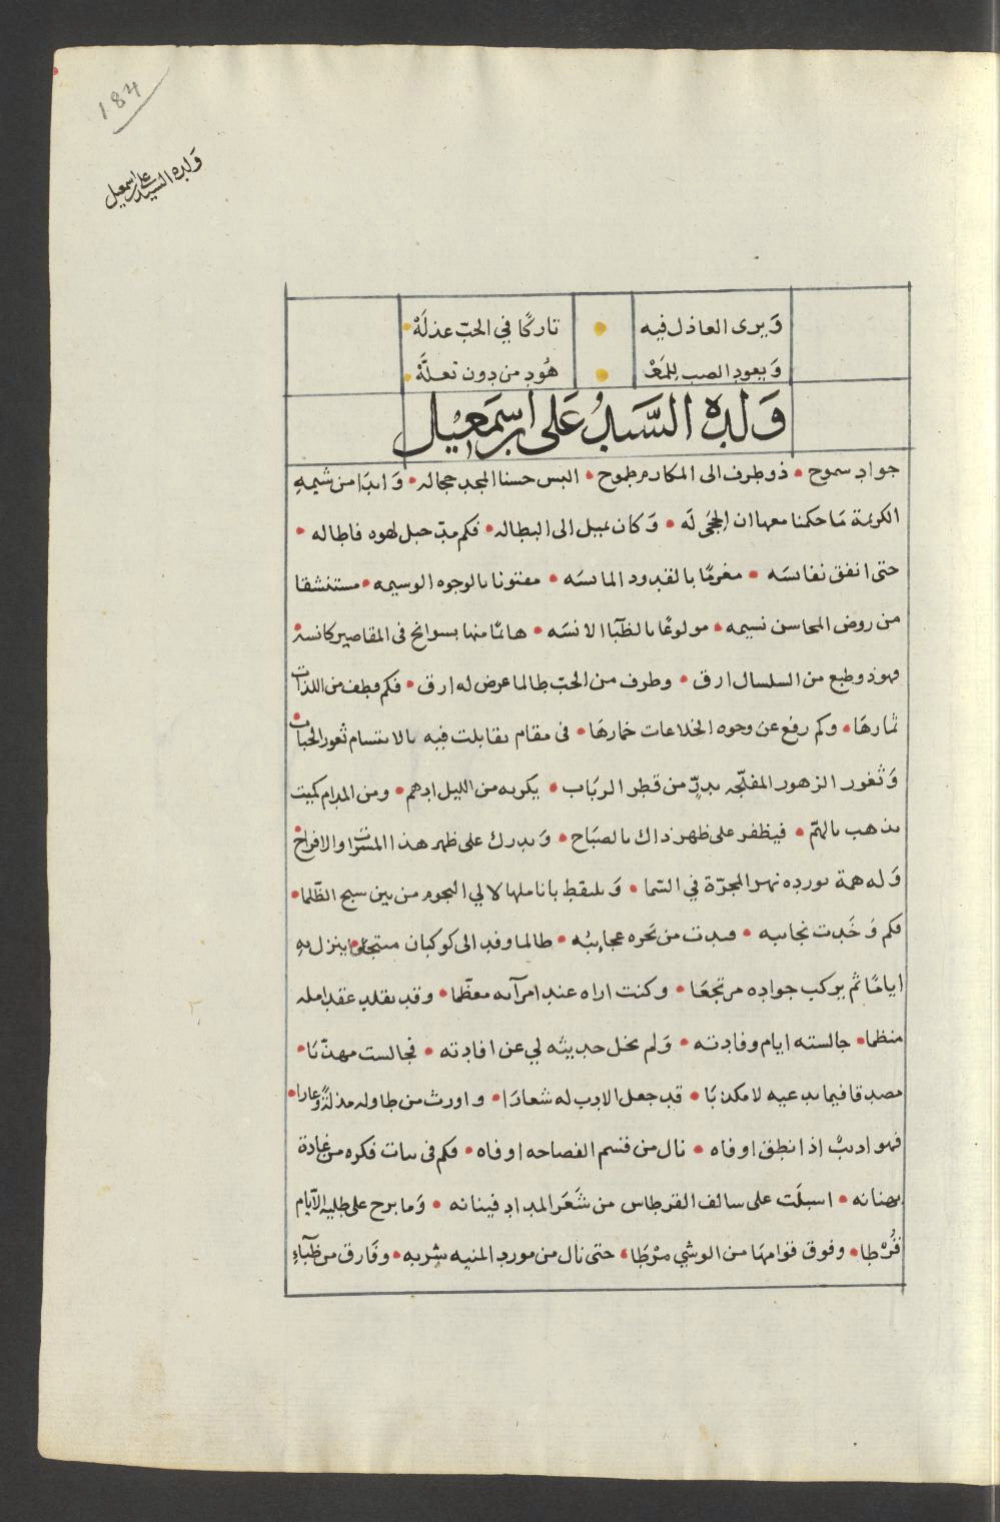 184
ولده السيد علي اسمعيل
وَيرى العاذل فيه • تاركًا في الحبّ عذلَهْ •
وَيعود الصب للمَعْ • هُود من دون تعلَّهْ •
وَلده السَّيدُ عَلى اسمَعِيْل
جواد سموح • ذو طرف الى المكارم طموح • البس حسنا المجد حجاله • وَابدَا من شيمهِ
الكريمة مَا حكمنا معها ان الحِجَى لَه • وَكان يميل الى البطاله • فكم مدّ حبل لهوه فاطاله •
حتى انفق نفاسَه • مغرمًا بالقدود المايسَه • مفتونا بالوجوه الوسيمه • مستنشقا
من روض المحاسن نسيمه • مولوعًا بالظبآ الانسَه • هائمًا منها بسوانح في المقاصير كانسه •
فهو ذو طبع من السلسال ارق • وطرف من الحبّ طالما عرض له ارق • فكم قطف من اللذات
ثمارهَا • وكم رفع عن وجوه الخلاعات خمارهَا • في مقام تقابلت فيه بالابتسام ثغور الحباب •
وَثغور الزهور المفلّجه بدرٍّ من قطر الربَاب • يكر به من الليل ادهم • ومن المدام كميت
يذهب بالهمّ • فيظفر على ظهر ذاك بالصبَاح • وَيدرك على ظهر هذا المسرات والافراح •
وَله همة تورده نهر المجرّة في السّما • وَيلتقط باناملها لالي النجوم من بين سبج الظّلما •
فكم وَخَدت نجايبه • فبدت من نحره عجايبُه • طالما وفد الى كوكبان منتجعًا • ينزل به
ايامًا ثم يركب جواده مرتجعَا • وكنت اراه عند امرآئه معظّما • وقد تقلد عقد امله
منظما • جالسته ايام وفادته • وَلم يخل حديثه لي عن افادته • فجالست مهذّبَا •
مصدقا فيما يدعيه لا مكذبَا • قد جعل الادب له شعارًا • واورث من طاوله مذلةً وعارا •
فهو اديبٌ اذا نطق اوفاه • نال من قسم الفصاحه اوفاه • فكم في بيات فكره من غادة
بهنانه • اسبلَت على سالف القرطاس من شَعَر المداد فينانه • وَما برح على طلية الايّام
قُرْطا • وفوق قوامهَا من الوشي مرْطَا • حتى نال من مورد المنيه شربه • وفَارق من ظبآءِ